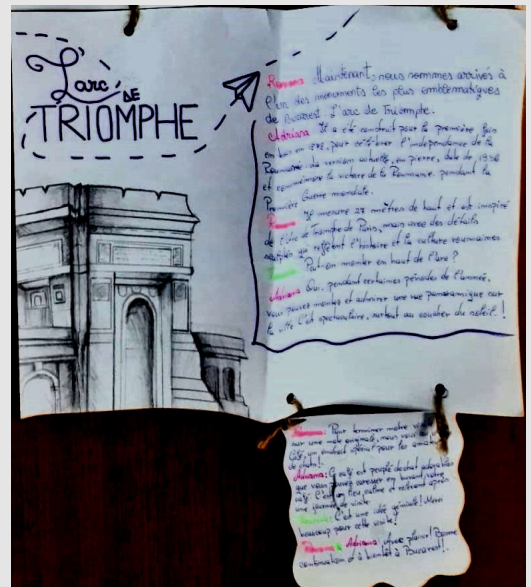 L'arc DE
TRIOMPHE
Maintenant, nous sommes arrivés à
l'un des monuments les plus emblématiques
de Bucarest. L'arc de Triomphe.
Adriana Il a été construit pour la première fois
en bois en 1878, pour célébrer l'indépendance de la
Roumanie. La version actuelle, en pierre, date de 1936
et commémore la victoire de la Roumanie pendant la
Première Guerre mondiale.
Il mesure 27 mètres de haut et est inspiré
de l'Arc de Triomphe de Paris, mais avec des détails
qui reflètent l'histoire et la culture roumaines
Peut-on monter en haut de l'arc?
Adriana Oui, pendant certaines périodes de l'année,
vous pouvez monter et admirer une vue panoramique sur
la ville. C'est spectaculaire, surtout au coucher du soleil..!
Pour terminer notre
sur une note originale, nous
un endroit pour les
de chats!
Adriana: Ce café est peuplé de chats adorables
que vous pouvez caresser en buvant votre
café. C'est un lieu calme et relaxant après
une journée de visite.
C'est une idée géniale! Merci
beaucoup pour cette visite!
Adriana: Avec plaisir! Bonne
continuation et à bientôt à Bucarest!